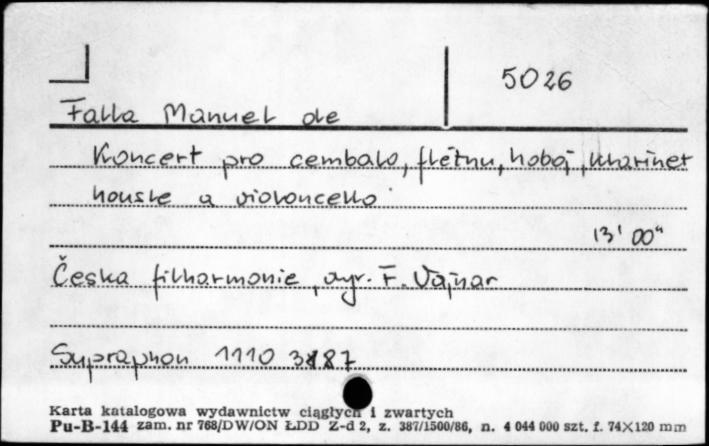 5026
Falla Manuel de
Koncert pro cembalo, flétnu, hoboj, klarinet
housle a violoncello
13' 00"
Česka filharmonie, dyr. F. Vajnar
Supraphon 1110 3487
Karta katalogowa wydawnictw ciągłych i zwartych
Pu-B-144 zam. nr 768/DW/ON ŁDD Z-d 2, z. 387/1500/86, n. 4 044 000 szt. f. 74×120 mm